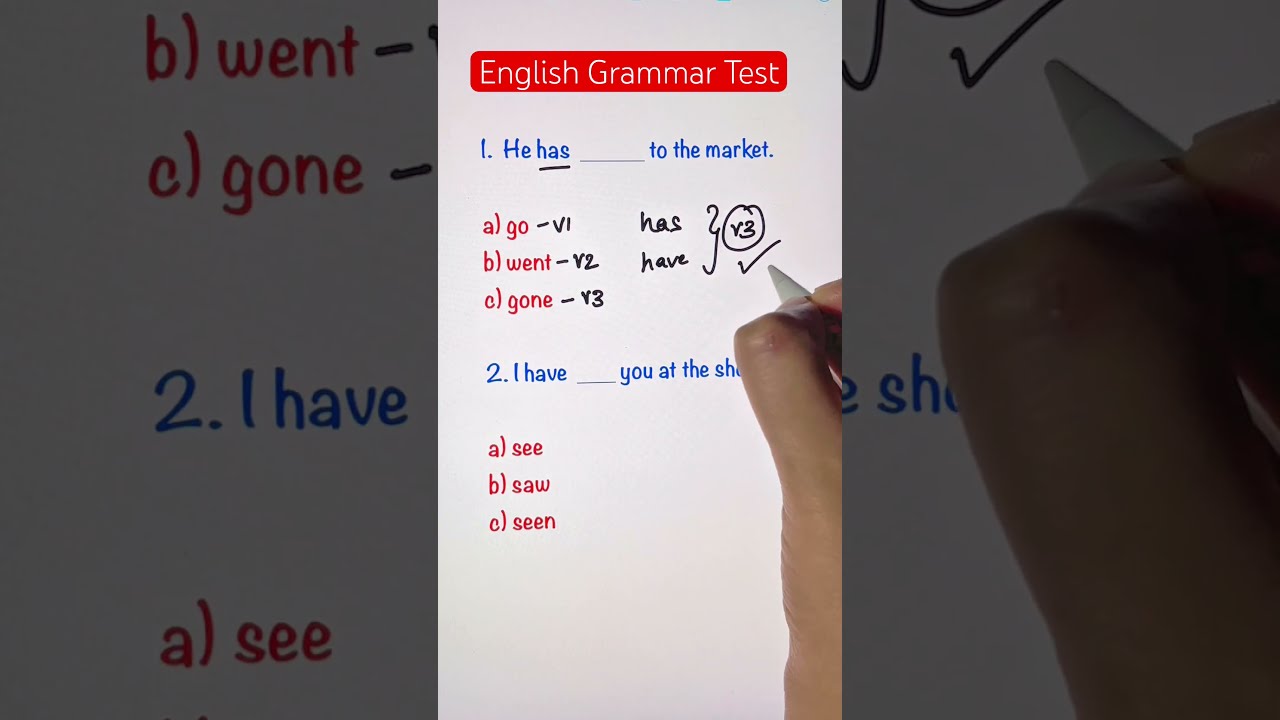 English Grammar Test
1. He has ______ to the market.
a) go – v1 has
b) went – v2 have } v3 ✓
c) gone – v3
2. I have ____ you at the
a) see
b) saw
c) seen
b) went –
c) gone –
2. I have
a) see